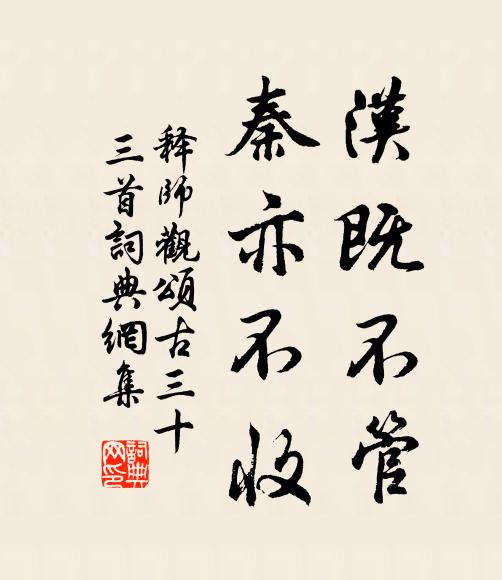 漢既不管
秦亦不收
释師觀頌古三十
三首詞典網集
詞典网印